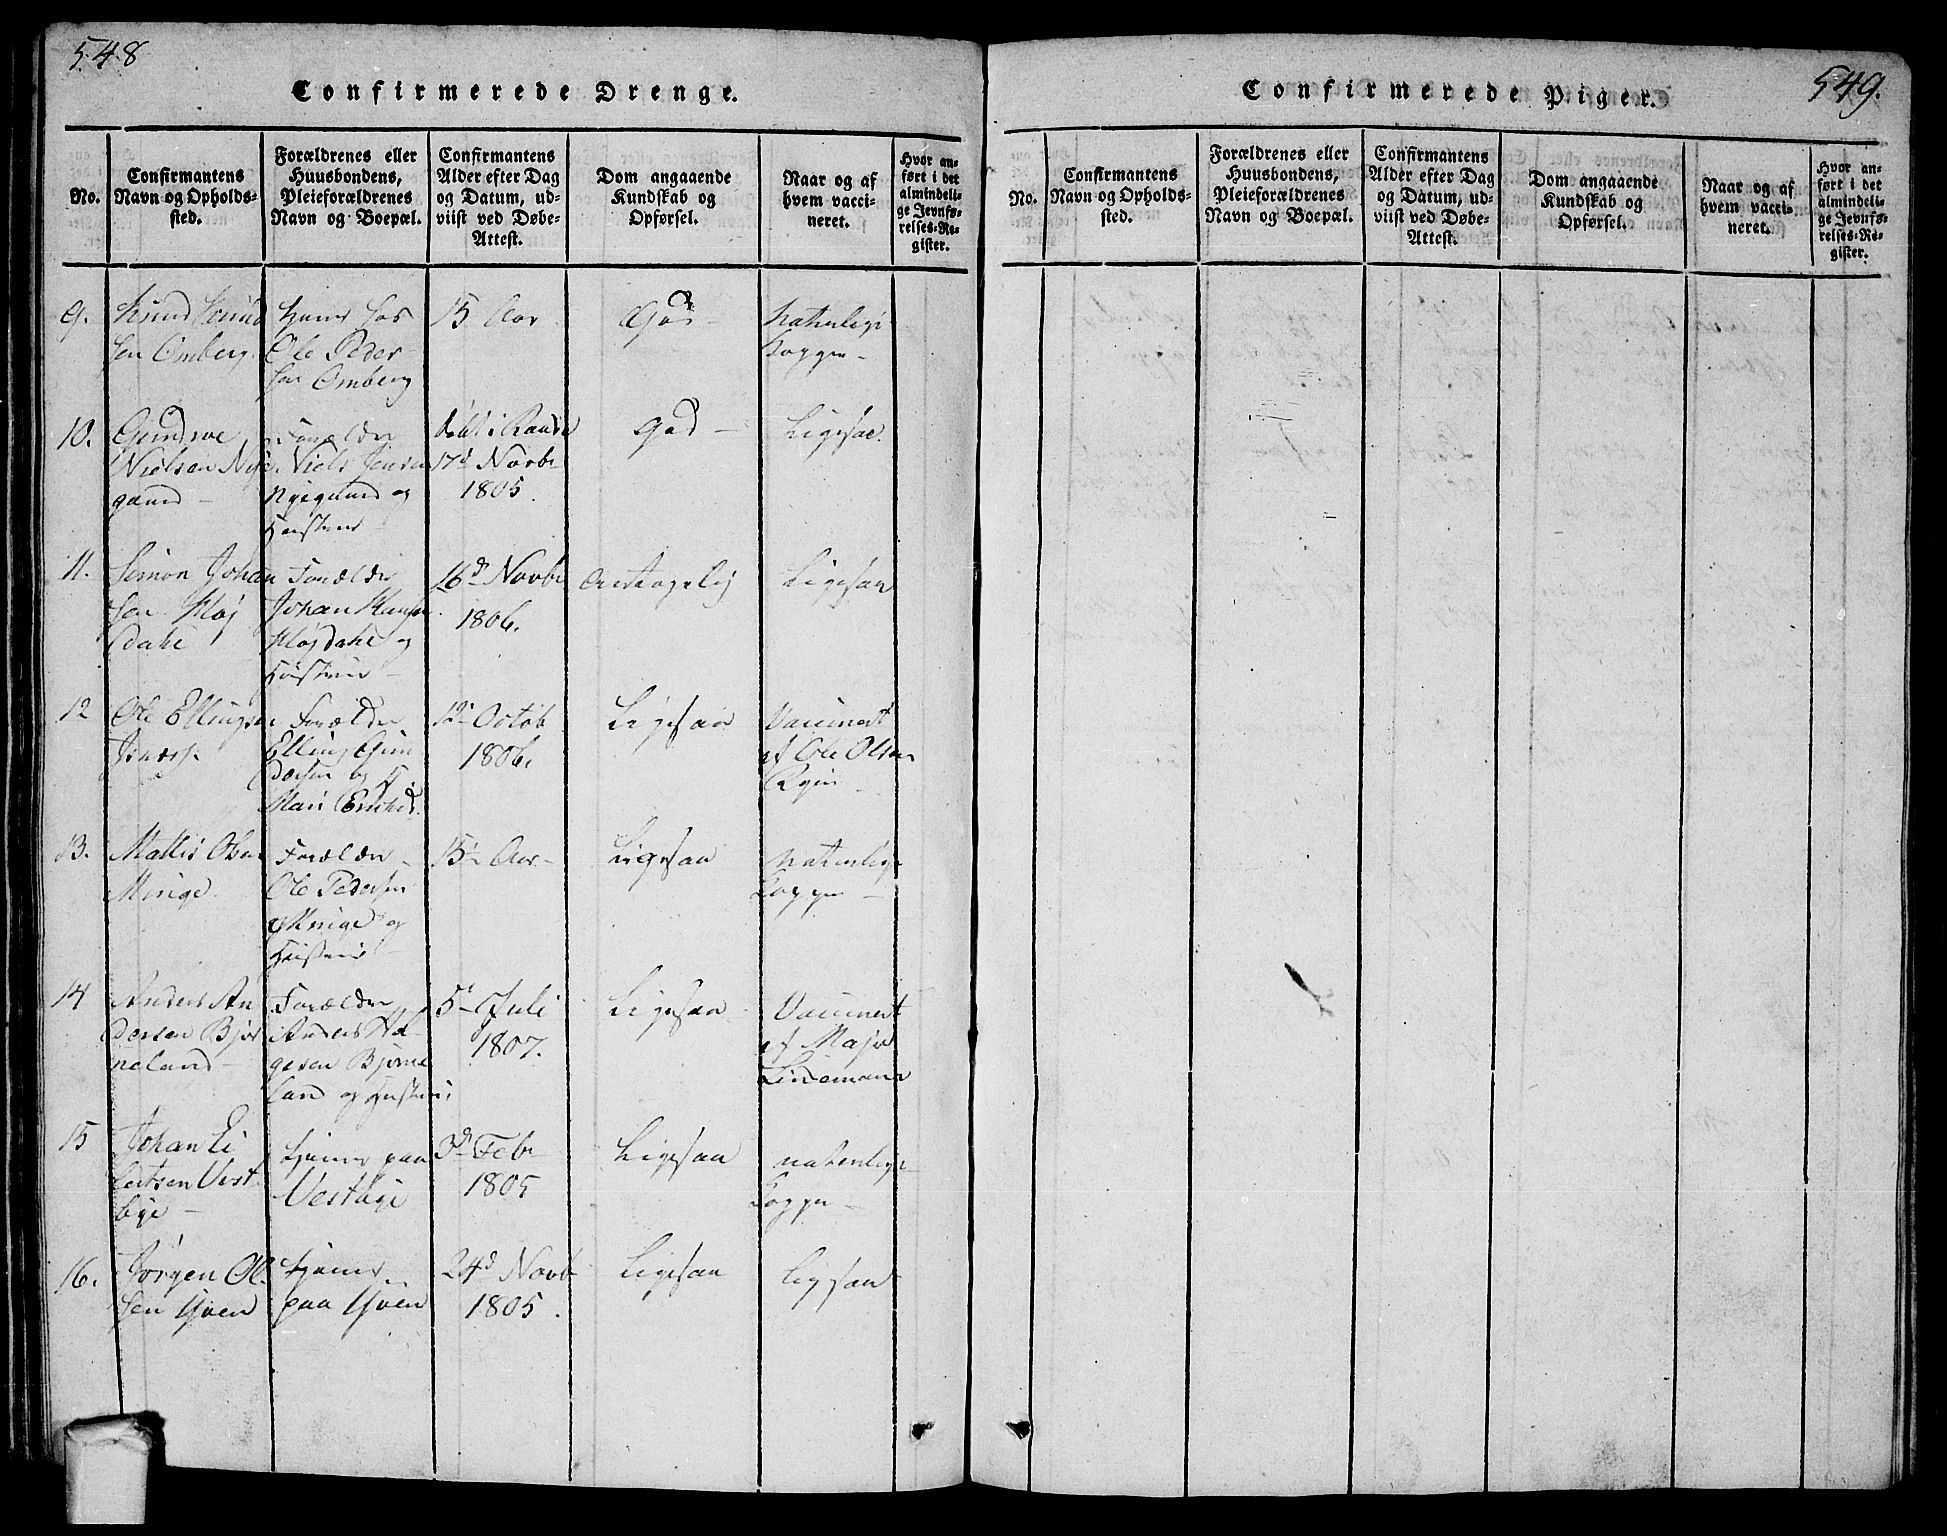 548
Confirmerede Drenge.
No.
Confirmantens
Navn og Opholds-
sted.
Forældrenes eller
Huusbondens,
Pleieforældrenes
Navn og Boepæl.
Confirmantens
Alder efter Dag
og Datum, ud-
viist ved Døbe-
Attest.
Dom angaaende
Kundskab og
Opførsel.
Naar og af
hvem vacci-
neret.
Hvor an-
ført i det
almindeli-
ge Jevnfø-
relses-Re-
gister.
9.
sen Omberg
tjener hos
Ole Peder-
sen Omberg
15 Aar
God -
Naturlige
Kopper -
10.
Nielsen Nye
gaard -
Forældre
Niels Jensen
Nyegaard og
Hustrue
17d Novbr
1805.
God -
Ligesaa
11.
Simon Johan
sen Møj
dahl
Forældre
Johan Hansen
Møjdahl og
Hustrue -
16d Novbr
1806.
Antagelig
Ligesaa
12
Ole Ellingsen
Forældre
Elling Gun
dersen og
Mari
12t Octob
1806.
Ligesaa
Vaccinert
af Ole Olsen
13.
Mattis Olsen
Forældre -
Ole Pedersen
og
Hustrue -
15 Aar -
Ligesaa
Naturlige
Kopper -
14
Anders An
dersen Bjør
neland -
Forældre
Anders Aa
gesen Bjørne
land og Hustrue
5t Juli
1807.
Ligesaa
Vaccinert
af Major
Lindemann
15
Johan Ei
lertsen Vest
bye -
tjener paa
Vestbye
3d Febr
1805
Ligesaa
naturlige
Kopper -
16.
Jörgen Ol
sen Hven
tjener
paa Hven
24d Novb
1805.
Ligesaa
Ligesaa
549.
Confirmerede Piger.
No.
Confirmantens
Navn og Opholds-
sted.
Forældrenes eller
Huusbondens,
Pleieforældrenes
Navn og Boepæl.
Confirmantens
Alder efter Dag
og Datum, ud-
viist ved Døbe-
Attest.
Dom angaaende
Kundskab og
Opførsel.
Naar og af
hvem vacci-
neret.
Hvor an-
ført i det
almindeli-
ge Jevnfø-
relses-Re-
gister.